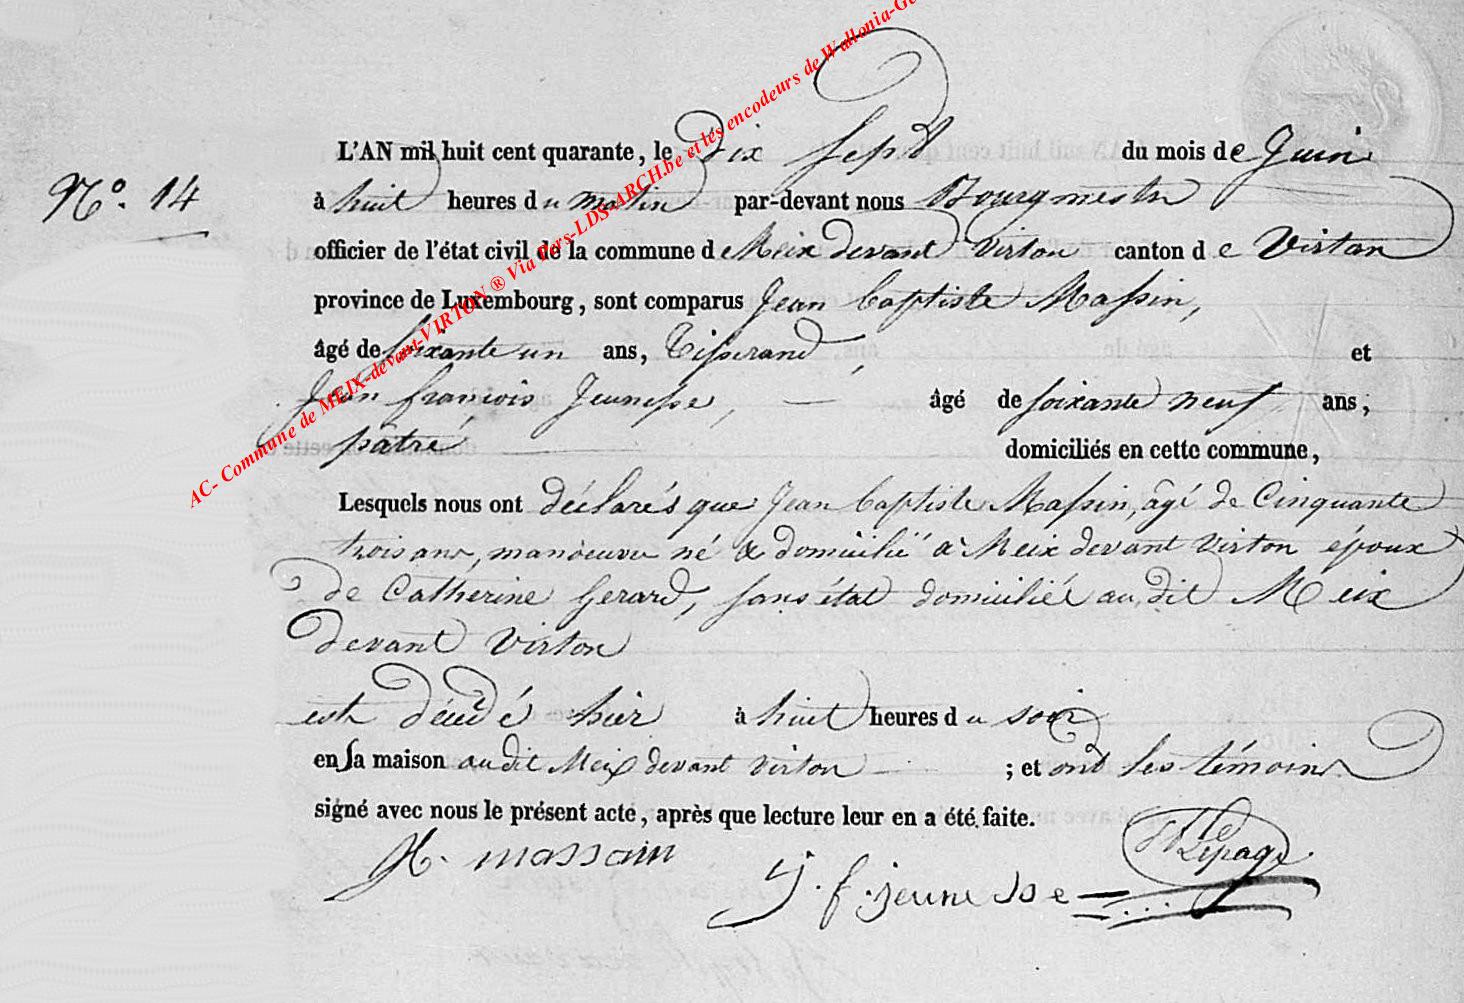 AC- Commune de MEIX-devant-VIRTON ® Via Pers-LDS-ARCH.be et les encodeurs de Wallonia-Ge
L'AN mil huit cent quarante, le dix sept du mois de Juin
N° 14
à huit heures du matin par-devant nous Bourgmestre
officier de l'état civil de la commune d Meix devant Virton canton de Virton
province de Luxembourg, sont comparus Jean Baptiste Massin,
âgé de soixante un ans, Tisserand, et
Jean françois Jeunesse, — âgé de soixante neuf ans,
pâtre domiciliés en cette commune,
Lesquels nous ont déclarés que Jean Baptiste Massin, âgé de Cinquante
trois ans, manoeuvre né & domicilié à Meix devant Virton époux
de Catherine Gerard, sans état domiciliée au dit Meix
devant Virton
est décédé hier à huit heures du soir
en sa maison au dit Meix devant Virton ; et ont les témoins
signé avec nous le présent acte, après que lecture leur en a été faite.
massain
j. f. jeunesse
Lepage